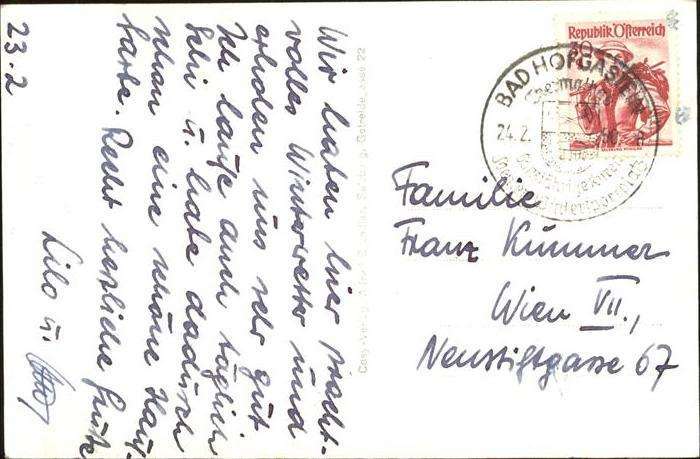 23.2
Wir haben hier pracht-
volles Winterwetter und
erholen uns sehr gut
Ich laufe auch täglich
Schi u. habe dadurch
schon eine schöne Haut-
farbe. Recht herzliche Grüße
Lilo u. Otto
Republik Österreich
BAD HOFGASTEIN
24.2.
Familie
Franz Kummer
Wien VII.,
Neustiftgasse 67